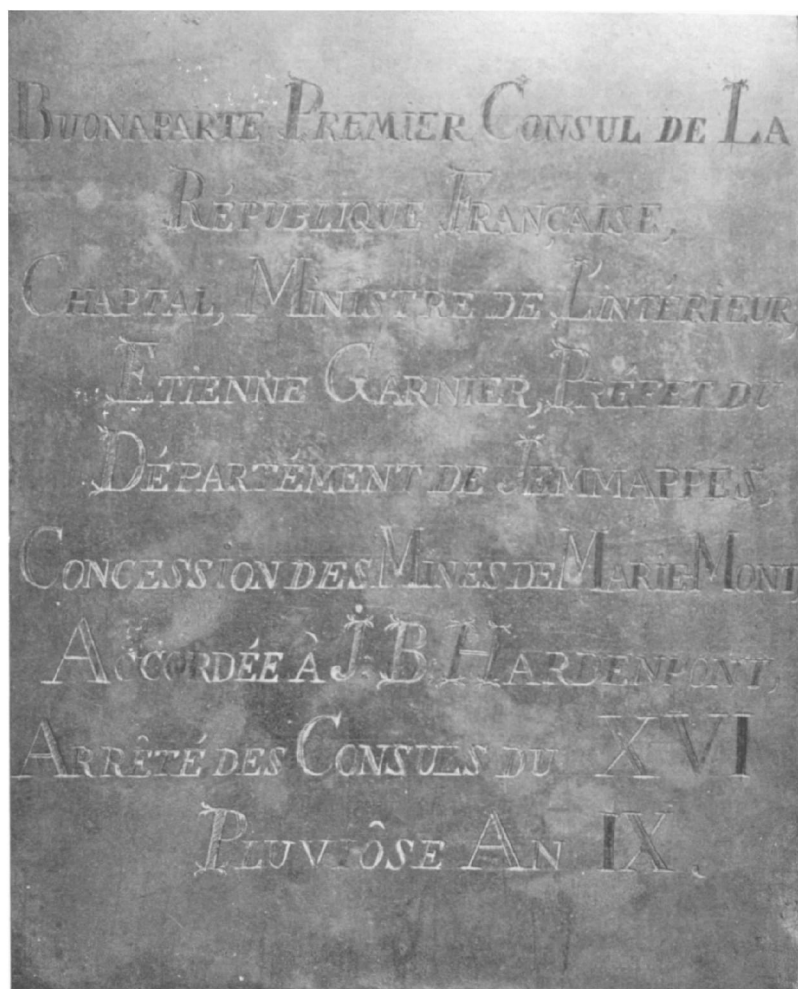 BUONAPARTE PREMIER CONSUL DE LA
RÉPUBLIQUE FRANÇAISE,
CHAPTAL, MINISTRE DE L'INTÉRIEUR,
ETIENNE GARNIER, PRÉFET DU
DÉPARTÊMENT DE JEMMAPPES,
CONCESSION DES MINES DE MARIE MONT,
ACCORDÉE À J. B. HARDENPONT,
ARRÊTÉ DES CONSULS DU XVI
PLUVIÔSE AN IX.